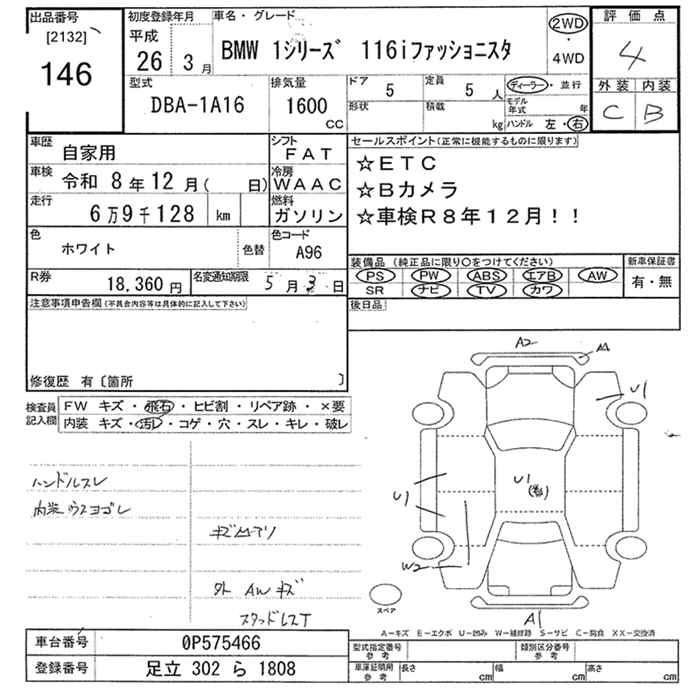 出品番号
[2132]
146
初度登録年月
平成
26 3月
車名・グレード
BMW 1シリーズ 116iファッショニスタ
2WD
・
4WD
評価点
4
外装 内装
C B
型式
DBA-1A16
排気量
1600
CC
ドア
5
定員
5 人
形状
積載
kg
ディーラー・並行
モデル年式 年
ハンドル 左・右
車歴
自家用
シフト
FAT
車検
令和 8年12月( 日)
冷房
WAAC
走行
6万9千128 km
燃料
ガソリン
色
ホワイト
色替
色コード
A96
R券
18,360円
名変通知期限
5月3日
セールスポイント(正常に機能するものに限ります)
☆ETC
☆Bカメラ
☆車検R8年12月!!
装備品(純正品に限り〇をつけてください)
PS PW ABS エアB AW
SR ナビ TV カワ
新車保証書
有・無
後日品
注意事項申告欄(不具合内容等は具体的に記入して下さい)
修復歴 有〔箇所 〕
検査員記入欄
FW キズ・飛石・ヒビ割・リペア跡・×要
内装 キズ・汚レ・コゲ・穴・スレ・キレ・破レ
ハンドルスレ
内装ウスヨゴレ
外 AWキズ
スタッドレスT
A2
U1
U1
U1
W2
A1
スペア
A−キズ E−エクボ U−凹み W−補修跡 S−サビ C−腐食 XX−交換済
車台番号
0P575466
登録番号
足立 302 ら 1808
型式指定番号
参考
類別区分番号
参考
車庫証明用
参考
長さ cm
幅 cm
高さ cm